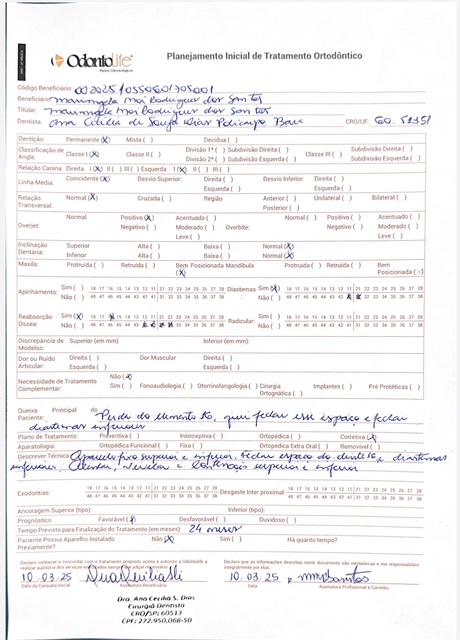 OdontoLife
Planos Odontológicos
Planejamento Inicial de Tratamento Ortodôntico
Código Beneficiário:
Beneficiário: dos Santos
Titular: dos Santos
Dentista: CRO/UF:
Dentição: Permanente (X) Mista ( ) Decídua ( )
Classificação de Angle: Classe I (X) Classe II ( ) Divisão 1ª ( ) Subdivisão Direita ( ) Classe III ( ) Subdivisão Direita ( )
Divisão 2ª ( ) Subdivisão Esquerda ( ) Subdivisão Esquerda ( )
Relação Canina: Direita I (X) II ( ) III ( ) Esquerda I (X) II ( ) III ( )
Linha Média: Coincidente (X) Desvio Superior: Direita ( ) Desvio Inferior: Direita ( )
Esquerda ( ) Esquerda ( )
Relação Transversal: Normal (X) Cruzada ( ) Região Anterior ( ) Unilateral ( ) Bilateral ( )
Posterior ( )
Overjet: Normal Positivo (X) Acentuado ( ) Overbite: Normal ( ) Positivo ( ) Acentuado ( )
Negativo ( ) Moderado ( ) Negativo ( ) Moderado ( )
Leve ( ) Leve ( )
Inclinação Dentária: Superior Alta ( ) Baixa ( ) Normal (X)
Inferior Alta ( ) Baixa ( ) Normal (X)
Maxila: Protruída ( ) Retruída ( ) Bem Posicionada (X) Mandíbula Protruida ( ) Retruída ( ) Bem Posicionada (X)
Apinhamento: Sim ( ) 18 17 16 15 14 13 12 11 21 22 23 24 25 26 27 28 Diastemas Sim (X) 18 17 16 15 14 13 12 11 21 22 23 24 25 26 27 28
Não ( ) 48 47 46 45 44 43 42 41 31 32 33 34 35 36 37 38 Não ( ) 48 47 46 45 44 43 42 33 34 35 36 37 38
Reabsorção Óssea: Sim (X) Radicular: Sim ( ) 18 17 16 15 14 13 12 11 21 22 23 24 25 26 27 28
Não ( ) Não ( ) 48 47 46 45 44 43 42 41 31 32 33 34 35 36 37 38
Discrepância de Modelos: Superior (em mm) Inferior (em mm):
Dor ou Ruído Articular: Direita ( ) Dor Muscular Direita ( )
Esquerda ( ) Esquerda ( )
Necessidade de Tratamento Complementar: Não (X)
Sim ( ) Fonoaudiologia ( ) Otorrinolangologia ( ) Cirurgia Ortognática ( ) Implantes ( ) Pré Protéticas ( )
Queixa Principal do Paciente: Perda do elemento 16, quer fechar esse espaço e fechar
diastemas inferiores
Plano de Tratamento: Preventiva ( ) Interceptiva ( ) Ortopédica ( ) Corretiva (X)
Aparatologia: Ortopédica Funcional ( ) Fixa ( ) Ortopédica Extra Oral ( ) Removível ( )
Descrever Técnica: Aparelho fixo superior e inferior, fechar espaço do dente 16 e diastemas
inferiores. Alinhar, nivelar e contenção superior e inferior
Exodontias: 18 17 16 15 14 13 12 11 21 22 23 24 25 26 27 28 Desgaste Inter proximal: 18 17 16 15 14 13 12 11 21 22 23 24 25 26 27 28
48 47 46 45 44 43 42 41 31 32 33 34 35 36 37 38 48 47 46 45 44 43 42 41 31 32 33 34 35 36 37 38
Ancoragem Superior (tipo): Inferior (tipo):
Prognóstico Favorável (X) Desfavorável ( ) Duvidoso ( )
Tempo Previsto para Finalização do Tratamento (em meses): 24 meses
Paciente Possui Aparelho Instalado Previamente? Não (X) Sim ( ) Há quanto tempo?
10.03.25 10.03.25
Data da Consulta Inicial Assinatura Beneficiário Data Assinatura Profissional e Carimbo
Dra. Ana Cecília S. Dias
Cirurgiã Dentista
CRO/SP: 60513
CPF: 272.950.068-50